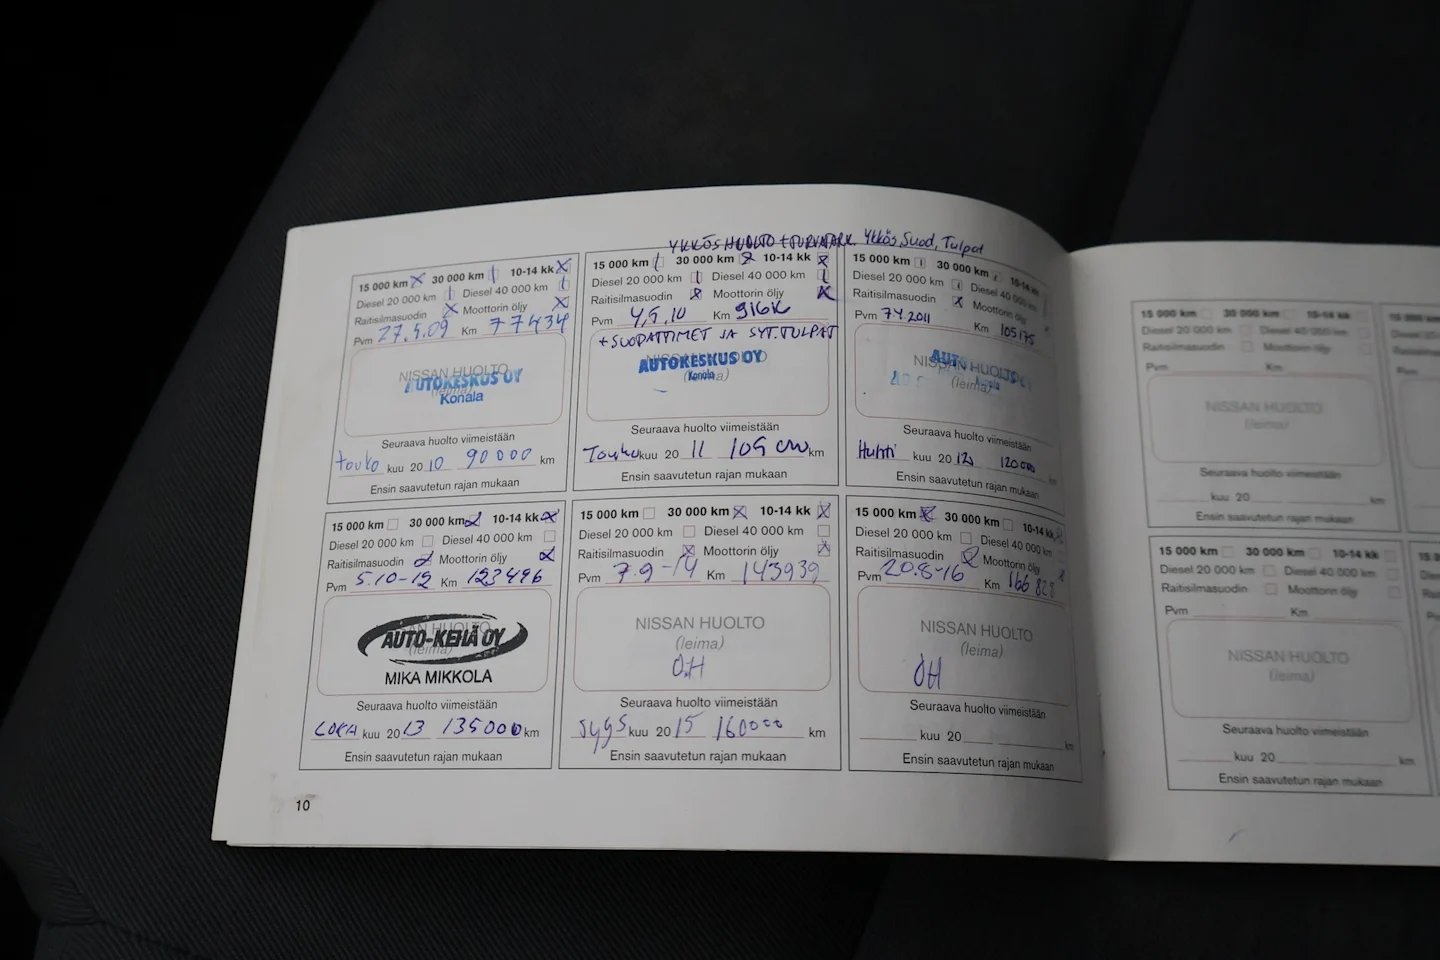 YKKÖSHUOLTO + TURVATARK. Ykkös, Suod, Tulpat
15 000 km 30 000 km 10-14 kk
Diesel 20 000 km Diesel 40 000 km
Raitisilmasuodin Moottorin öljy
Pvm 27.5.09 Km 77434
NISSAN HUOLTO
(leima)
AUTOKESKUS OY
Konala
Seuraava huolto viimeistään
touko kuu 2010 90000 km
Ensin saavutetun rajan mukaan
15 000 km 30 000 km 10-14 kk
Diesel 20 000 km Diesel 40 000 km
Raitisilmasuodin Moottorin öljy
Pvm 4.5.10 Km 916K
+ SUODATTIMET JA SYT.TULPAT
NISSAN HUOLTO
(leima)
AUTOKESKUS OY
Konala
Seuraava huolto viimeistään
Touko kuu 20 11 km
Ensin saavutetun rajan mukaan
15 000 km 30 000 km 10-14 kk
Diesel 20 000 km Diesel 40 000 km
Raitisilmasuodin Moottorin öljy
Pvm 7.4.2011 Km 105175
NISSAN HUOLTO
(leima)
Seuraava huolto viimeistään
Huhti kuu 2012 120000 km
Ensin saavutetun rajan mukaan
15 000 km 30 000 km 10-14 kk
Diesel 20 000 km Diesel 40 000 km
Raitisilmasuodin Moottorin öljy
Pvm 5.10-12 Km 123496
NISSAN HUOLTO
(leima)
AUTO-KEHÄ OY
MIKA MIKKOLA
Seuraava huolto viimeistään
LOKA kuu 2013 135000 km
Ensin saavutetun rajan mukaan
15 000 km 30 000 km 10-14 kk
Diesel 20 000 km Diesel 40 000 km
Raitisilmasuodin Moottorin öljy
Pvm 7.9-14 Km 143939
NISSAN HUOLTO
(leima)
OH
Seuraava huolto viimeistään
Syys kuu 2015 160000 km
Ensin saavutetun rajan mukaan
15 000 km 30 000 km 10-14 kk
Diesel 20 000 km Diesel 40 000 km
Raitisilmasuodin Moottorin öljy
Pvm 20.8-16 Km 166828
NISSAN HUOLTO
(leima)
OH
Seuraava huolto viimeistään
kuu 20 km
Ensin saavutetun rajan mukaan
10
15 000 km 30 000 km 10-14 kk
Diesel 20 000 km Diesel 40 000 km
Raitisilmasuodin Moottorin öljy
Pvm Km
NISSAN HUOLTO
(leima)
Seuraava huolto viimeistään
kuu 20 km
Ensin saavutetun rajan mukaan
15 000 km 30 000 km 10-14 kk
Diesel 20 000 km Diesel 40 000 km
Raitisilmasuodin Moottorin öljy
Pvm Km
NISSAN HUOLTO
(leima)
Seuraava huolto viimeistään
kuu 20 km
Ensin saavutetun rajan mukaan